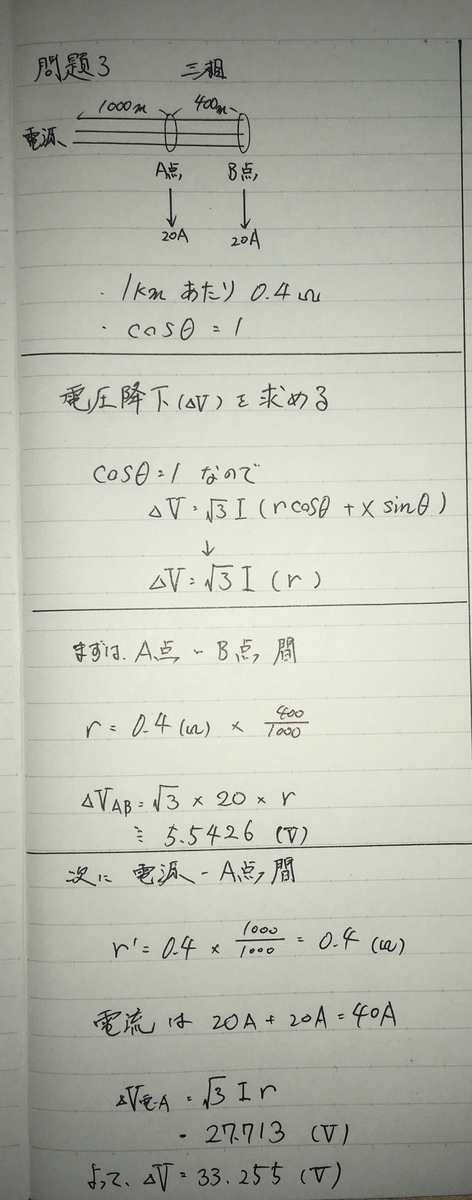 問題3 三相
1000m 400m
電源
A点 B点
20A 20A
・1kmあたり 0.4Ω
・cosθ = 1
電圧降下(ΔV)を求める
cosθ=1 なので
ΔV=√3 I (rcosθ + x sinθ)
↓
ΔV=√3 I (r)
まずは、A点~B点間
r = 0.4(Ω) × 400/1000
ΔV_AB=√3 × 20 × r
≒ 5.5426 (V)
次に 電源-A点間
r' = 0.4 × 1000/1000 = 0.4 (Ω)
電流は 20A + 20A = 40A
ΔV電-A = √3 I r
= 27.713 (V)
よって、ΔV = 33.255 (V)